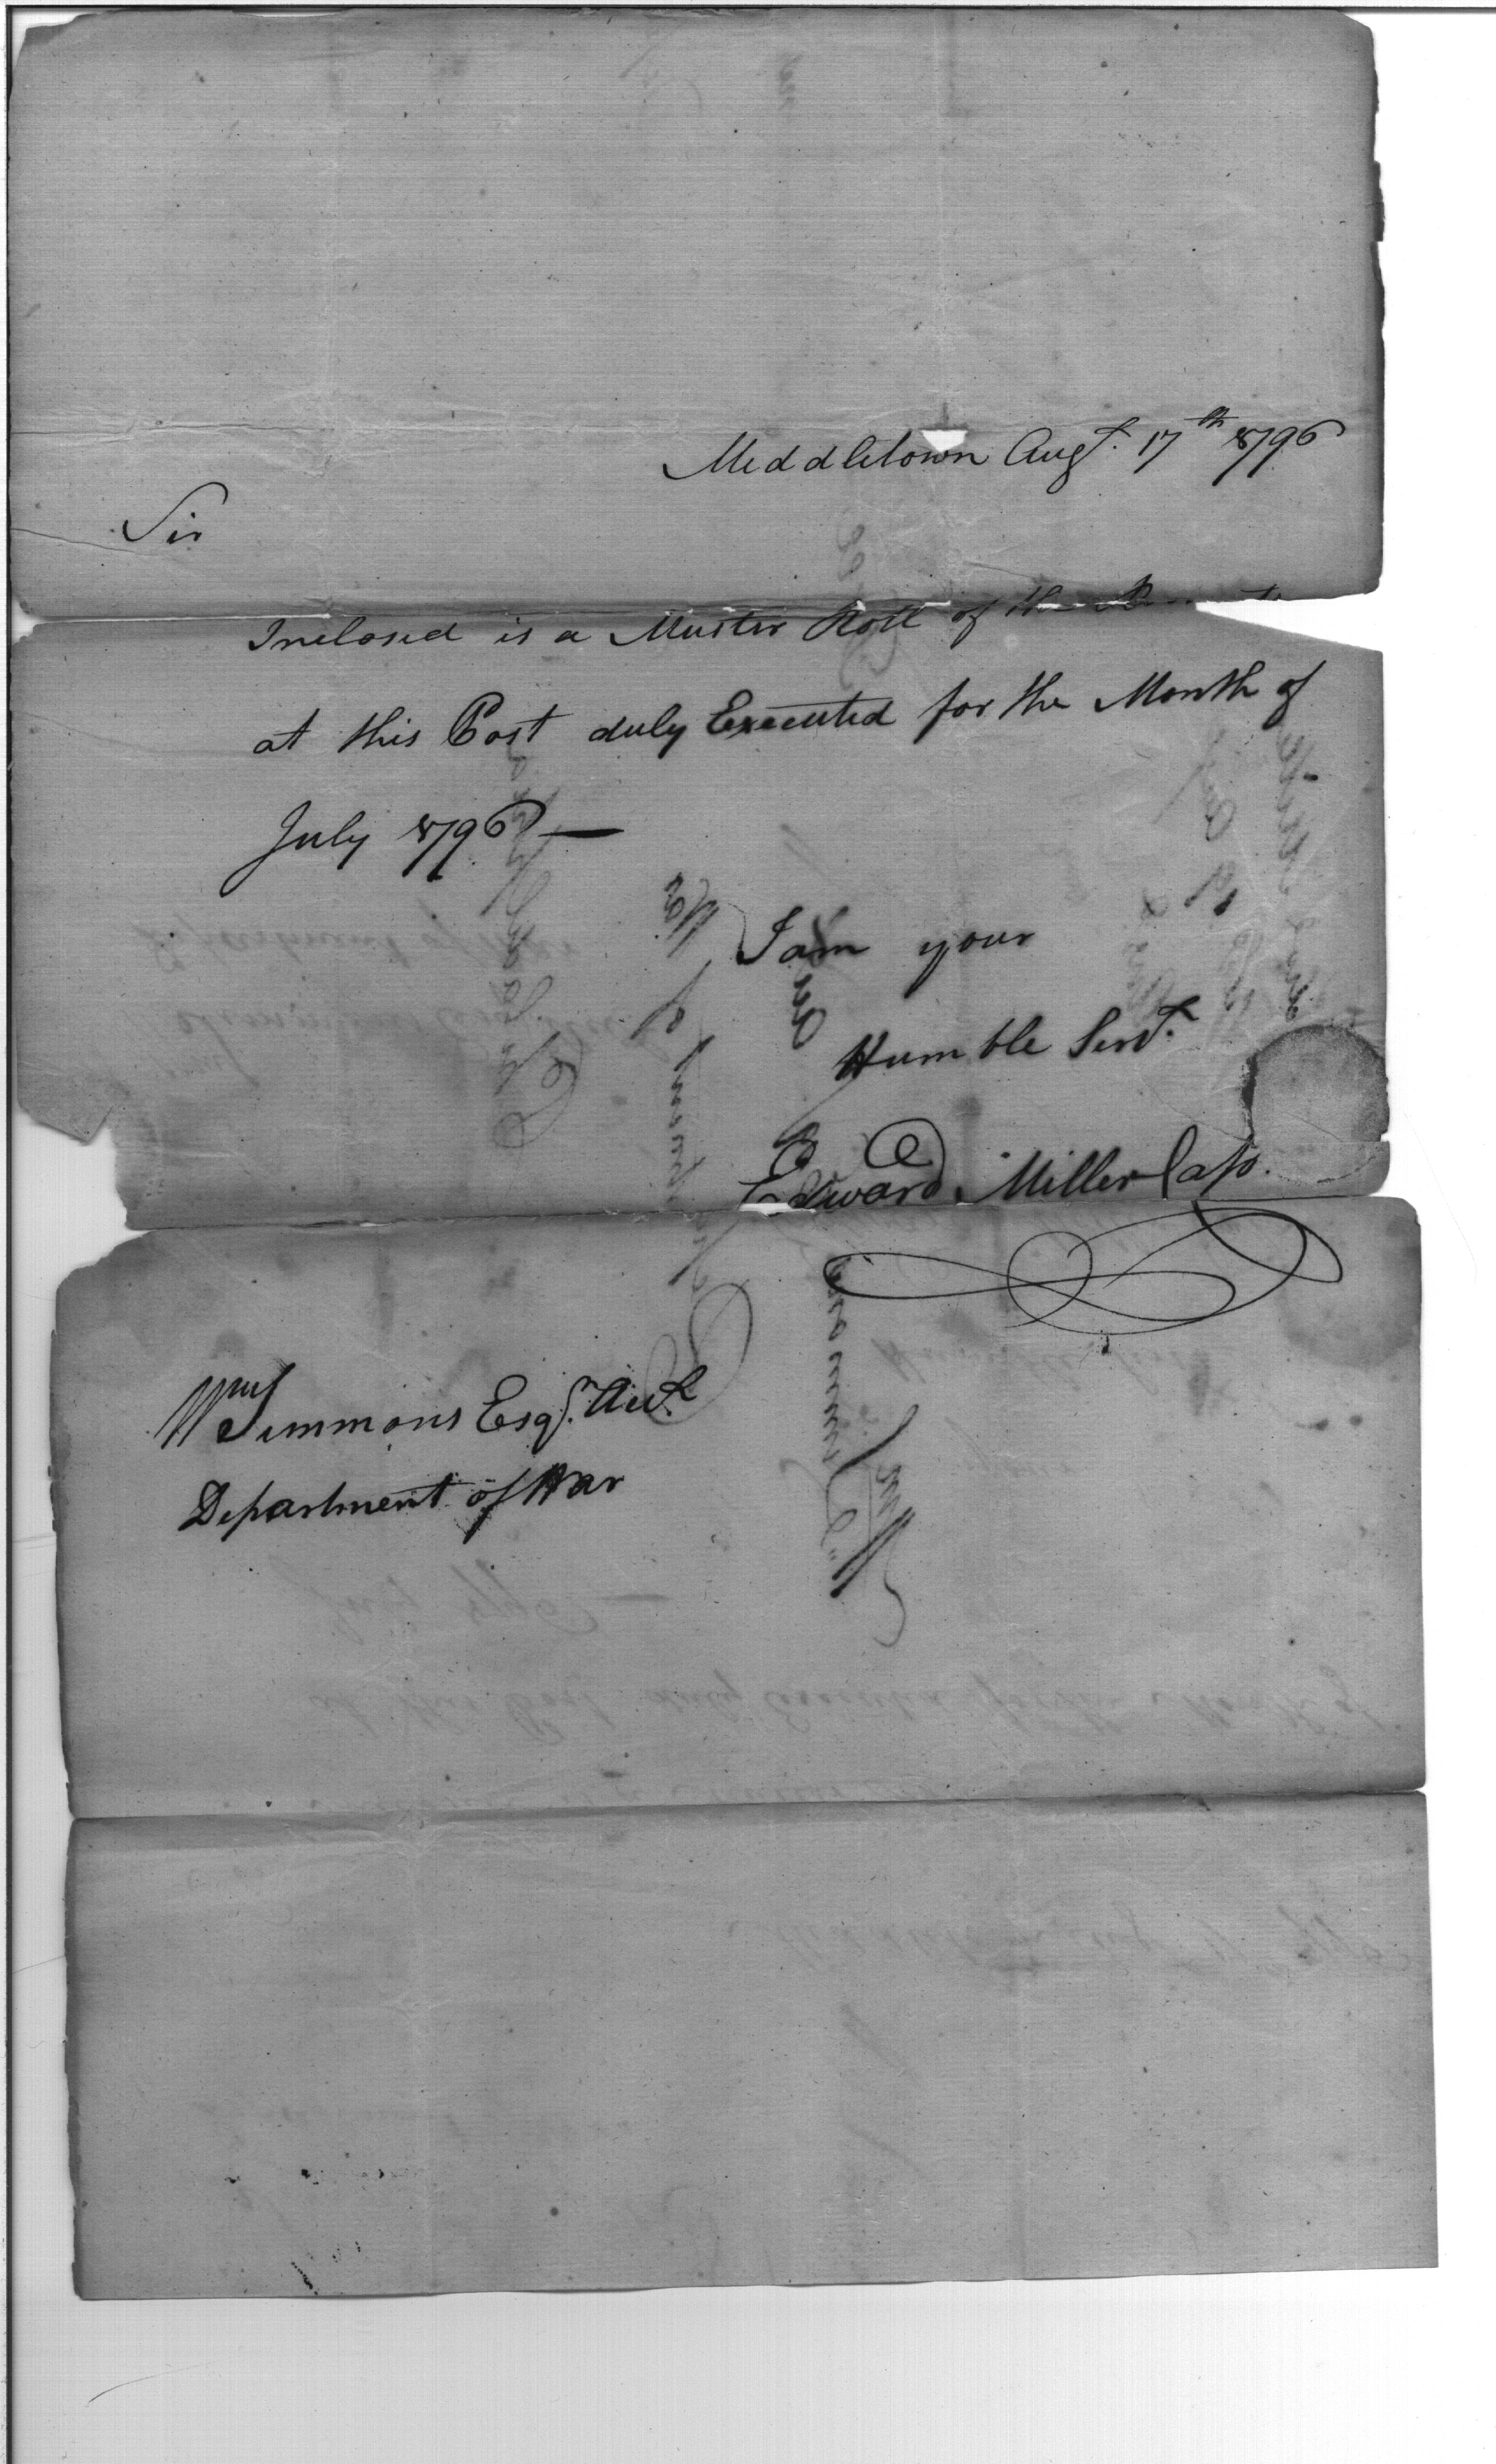 Middletown Augt. 17th 1796
Sir
Inclosed is a Muster Roll of the
at this Post duly Executed for the Month of
July 1796 —
I am your
Humble Servt.
Edward Miller Cap.
Wm Simmons Esqr. Acct
Department of War